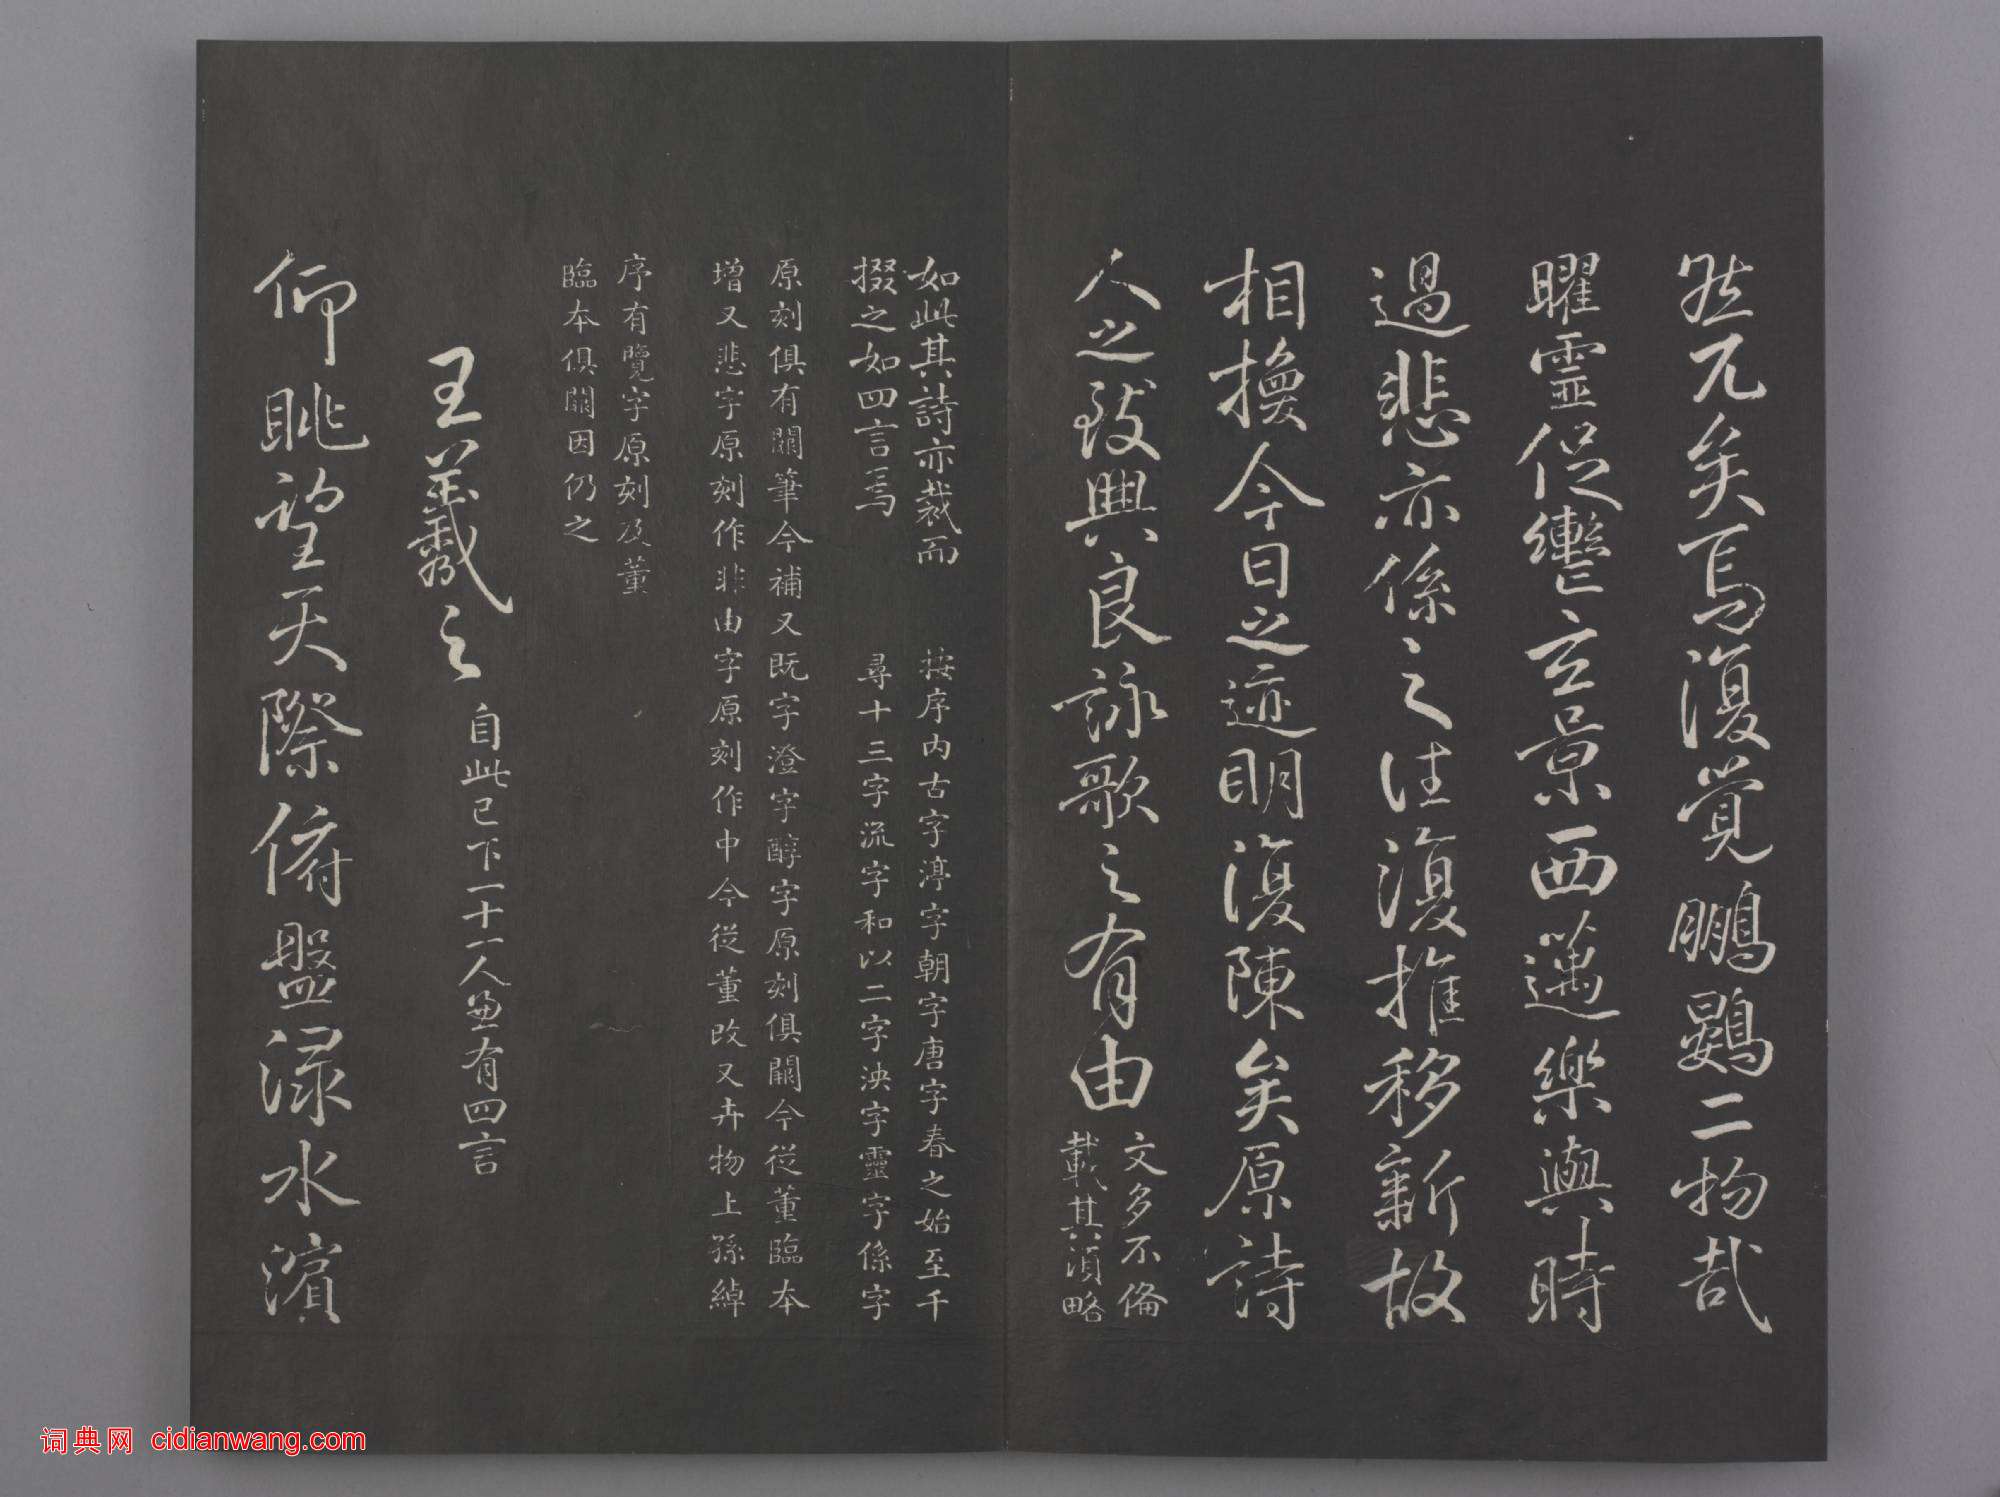 然兀矣焉復覺鵬鷃二物哉
曜靈促轡玄景西邁樂與時
過悲亦係之往復推移新故
相換今日之迹明復陳矣原詩
人之致興良詠歌之有由
文多不備
載其湏略
如此其詩亦裁而
掇之如四言焉
按序内古字渟字朝字唐字春之始至千
尋十三字流字和以二字泱字靈字係字
原刻俱有闕筆今補又既字澄字醇字原刻俱闕今從董臨本
增又悲字原刻作非由字原刻作中今從董改又卉物上孫綽
序有覽字原刻及董
臨本俱闕因仍之
王羲之
自此已下一十一人並有四言
仰眺望天際俯盤渌水濵
词典网 cidianwang.com